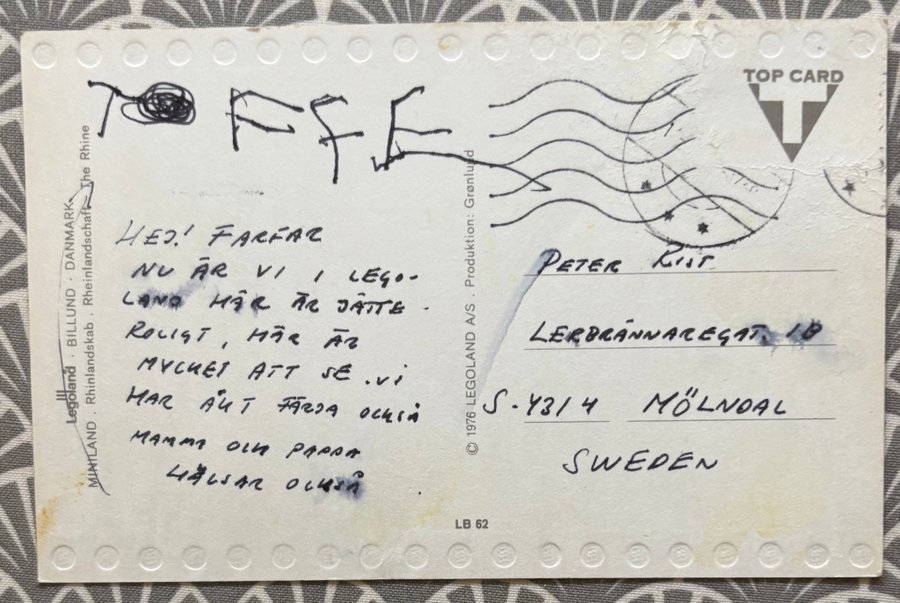 TOFFE
TOP CARD
HEJ! FARFAR
NU ÄR VI I LEGO-
LAND HÄR ÄR JÄTTE-
ROLIGT, HÄR ÄR
MYCKET ATT SE. VI
HAR ÅKT FÄRJA OCKSÅ
MAMMA OCH PAPPA
HÄLSAR OCKSÅ
PETER RIST.
LERBRÄNNAREGAT. 1B
S-4314 MÖLNDAL
SWEDEN
Legoland · BILLUND · DANMARK
MINILAND . Rhinlandskab . Rheinlandschaft . The Rhine
© 1976 LEGOLAND A/S . Produktion: Grønlund
LB 62